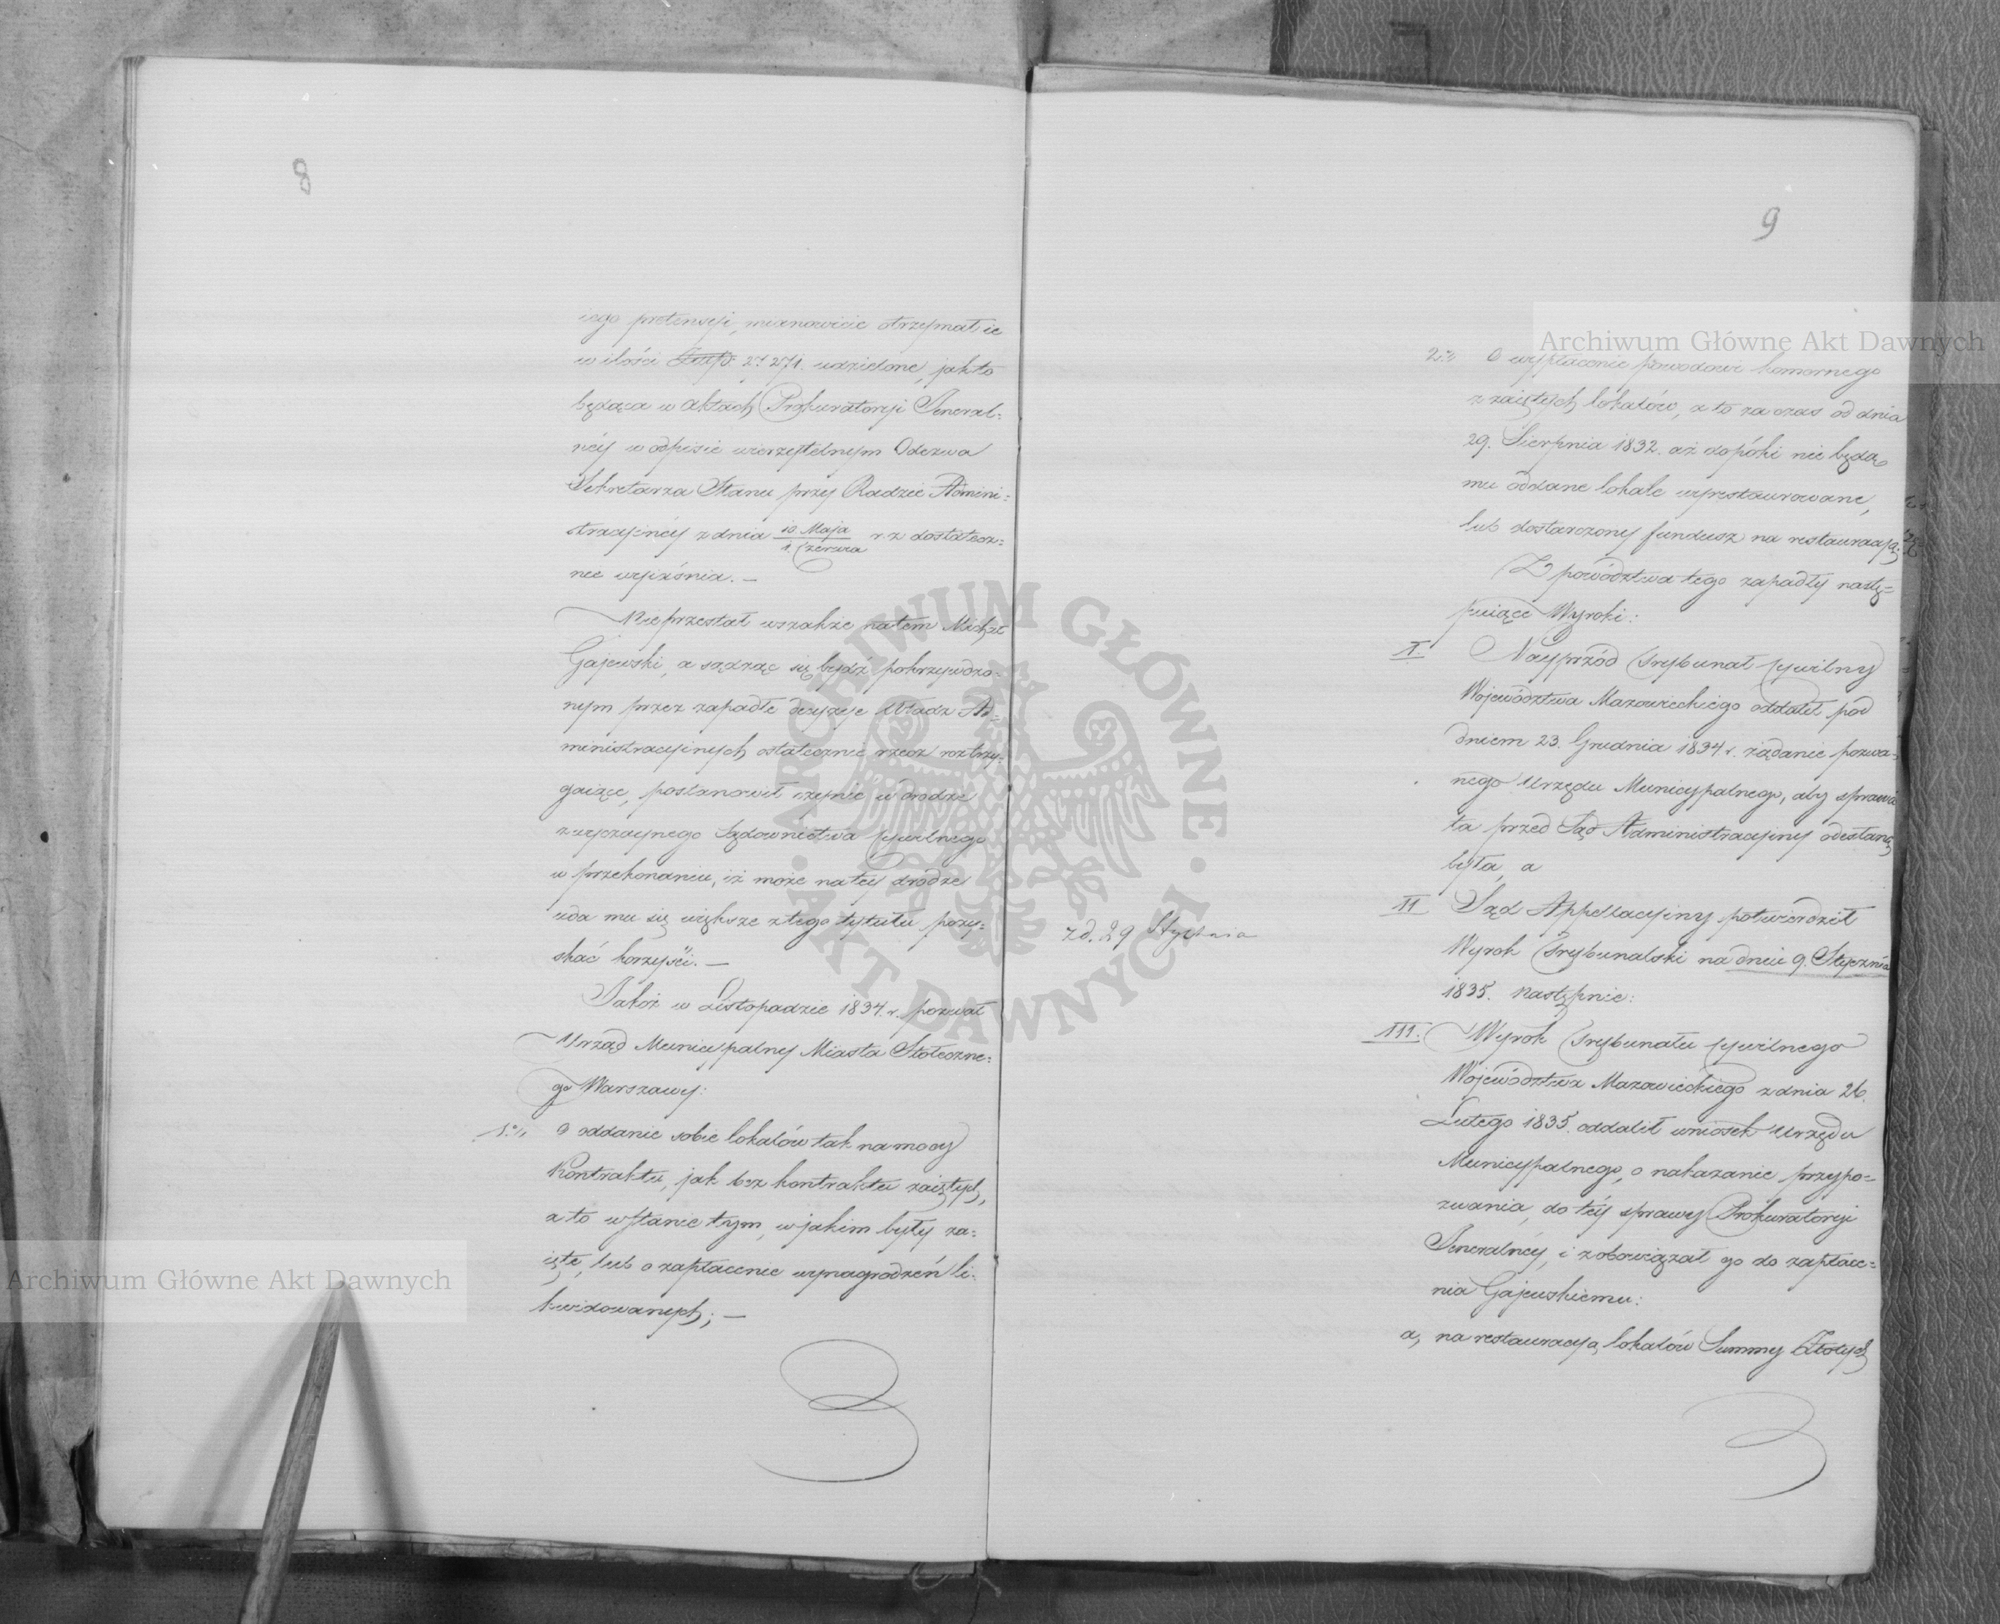 8
iego pretensyi, mianowicie otrzymał ie
w ilości 27 271. udzielone, jak to
będąca w aktach Prokuratoryi Jeneral-
néy w odpisie wierzytelnym Odezwa
Sekretarza Stanu przy Radzie Admini-
stracyinéy z dnia 20 Maja / 1. Czerwca r. z dostatecz-
nie wyiaśnia. —
Nieprzestał wszakże natem Michał
Gajewski, a sądząc się bydź pokrzywdzo-
nym przez zapadłe decyzye Władz Ad-
ministracyinych ostatecznie rzecz roztrzy-
gaiące, postanowił czynić w drodze
zwyczaynego Sądownictwa cywilnego
w przekonaniu, iż może na téy drodze
uda mu się większe z tego tytułu pozy-
skać korzyści. —
Jakoż w Listopadzie 1834. r. pozwał
Urząd Municypalny Miasta Stołeczne-
go Warszawy:
1.o O oddanie sobie lokalów tak na mocy
Kontraktu, jak bez kontraktu zaiętych,
a to w stanie tym, w jakim były za-
ięte, lub o zapłacenie wynagrodzeń li-
kwidowanych; —
9
2.o O wypłacenie powodowi komornego
z zaiętych lokalów, a to za czas od dnia
29. Sierpnia 1832. aż dopóki nie będą
mu oddane lokale wyrestaurowane,
lub dostarczony fundusz na restauracyą.
Z powództwa tego zapadły nastę-
puiące Wyroki:
I. Nayprzód Trybunał Cywilny
Województwa Mazowieckiego oddalił pod
dniem 23. Grudnia 1834 r. żądanie pozwa-
nego Urzędu Municypalnego, aby sprawa
ta przed Sąd Administracyiny odesłaną
była, a
II Sąd Appellacyiny potwierdził
Wyrok Trybunalski na dniu 9. Stycznia
z d. 29 Stycznia
1835. następnie:
III. Wyrok Trybunału Cywilnego
Województwa Mazowieckiego z dnia 26.
Lutego 1835. oddalił wniosek Urzędu
Municypalnego, o nakazanie przypo-
zwania, do téy sprawy Prokuratoryi
Jeneralnéy, i zobowiązał go do zapłace-
nia Gajewskiemu:
a, na restauracyą lokalów Summy Złotych
Archiwum Główne Akt Dawnych
Archiwum Główne Akt Dawnych
ARCHIWUM GŁÓWNE · AKT DAWNYCH ·